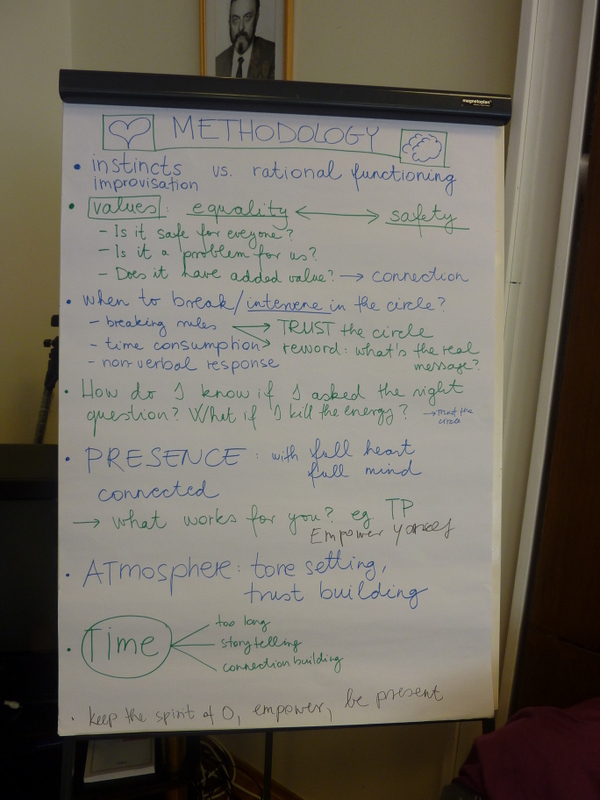 magnetoplan
METHODOLOGY
• instincts vs. rational functioning
improvisation
• values: equality ↔ safety
– Is it safe for everyone?
– Is it a problem for us?
– Does it have added value? → connection
• when to break/intervene in the circle?
– breaking rules → TRUST the circle
– time consumption → reword: what's the real message?
– non-verbal response
• How do I know if I asked the right
question? What if I kill the energy? → trust the circle
• PRESENCE: with full heart
full mind
connected
→ what works for you? eg TP
Empower yourself
• ATmosphere: tone setting,
trust building
• Time
too long
storytelling
connection building
• keep the spirit of O, empower, be present